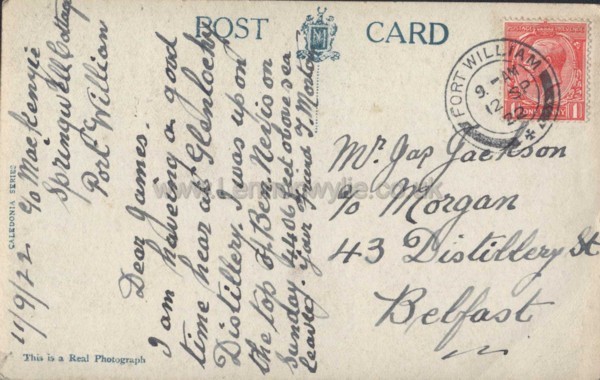 POST CARD
c/o MacKenzie
Springwell Cottage
Fort William
11/9/22
Dear James.
I am haveing a good
time hear at Glenlochy
Distillery. I was up on
the top of Ben Nevis on
Sunday 4406 feet above sea
leavel. Your friend J Mohan
Mr Jas Jackson
c/o Morgan
43 Distillery St
Belfast
FORT WILLIAM
9 - AM
12 SP
22
1 ONE PENNY 1
CALEDONIA SERIES
This is a Real Photograph